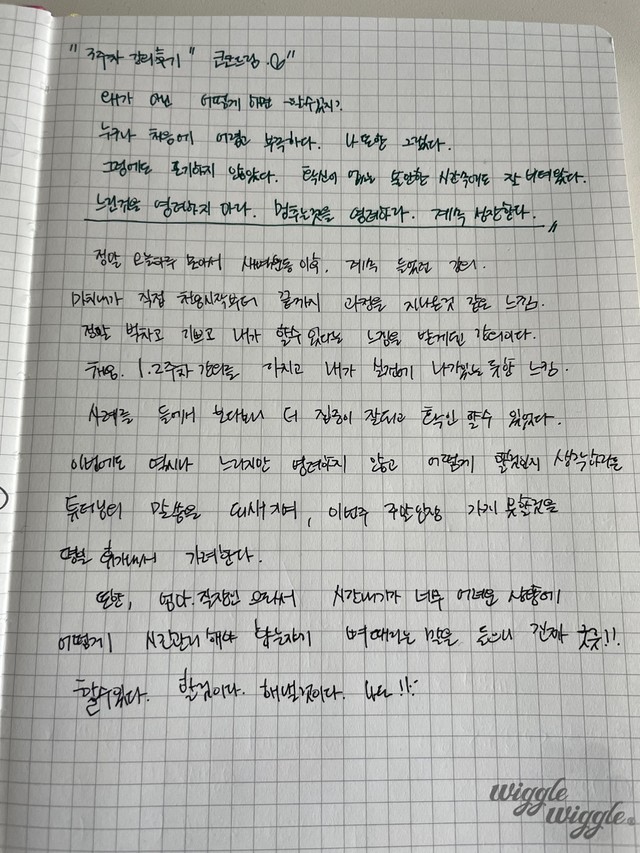 "3주차 강의후기" 코코드림.
왜가 아닌 어떻게 하면 할수있지?
누구나 처음에 어렵고 부족하다. 나 또한 그랬다.
그럼에도 포기하지 않았다. 확신이 없는 불안한 시간속에도 잘 버텨왔다.
느린것을 염려하지 마라. 멈추는것을 염려하라. 계속 성장한다.
정말 오늘하루 모아서 새벽운동 이후, 계속 들었던 강의.
마치 내가 직접 처음시작부터 끝까지 과정을 지나온것 같은 느낌.
정말 벅차고 기쁘고 내가 할수 있다는 느낌을 받게된 강의이다.
처음. 1.2주차 강의를 마치고 내가 실전에 나가있는 듯한 느낌.
사례를 들어서 보다보니 더 집중이 잘되고 확인 할수 있었다.
이번에도 역시나 느리지만 염려하지 않고 어떻게 할것인지 생각하라는
튜터님의 말씀을 되새기며, 이번주 주말임장 가지 못할것을
평일 휴가내서 가려한다.
또한, 엄마. 직장인 으로서 시간내기가 너무 어려운 상황에
어떻게 시간관리 해야 하는지 뼈때리는 말을 들으니 진짜 굿굿!!
할수있다. 할것이다. 해낼것이다. 나도!!
wiggle
wiggle